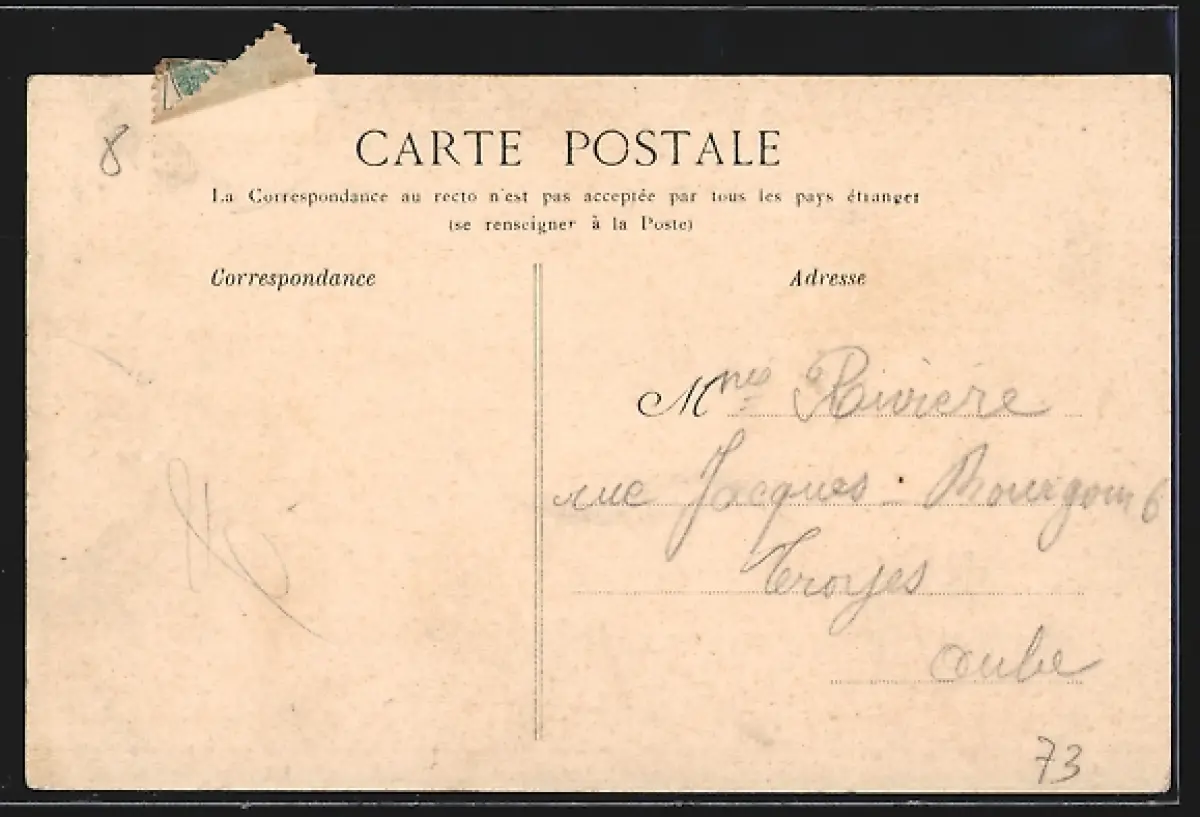 8
CARTE POSTALE
La Correspondance au recto n'est pas acceptée par tous les pays étranger
(se renseigner à la Poste)
Correspondance
Adresse
Mme Rivière
rue Jacques Bourgoin 6
Troyes
Aube
73